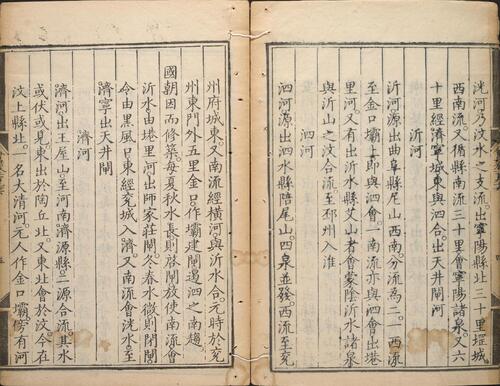 洸河乃汶水之支流出寧陽縣北三十里堽城
西南流又循縣南三十里會寧陽諸泉又六
十里經濟寧城東與泗合出天井閘河
沂河
沂河源出曲阜縣尼山西南分流為二一西流
至金口壩上即與泗會一南流亦與泗會出港
里河又有出沂水縣艾山者會蒙陰沂水諸泉
與沂山之汶合流至邳州入淮
泗河
泗河源出泗水縣陪尾山四泉並發西流至兖
州府城東又南流經橫河與沂水合元時於兖
州東門外五里金口作壩建閘遏泗之南趨
國朝因而修築每夏秋水長則啓閘放使南流會
沂水由港里河出師家莊閘冬春水微則閉閘
令由黑風口東經兖城入濟又南流會洸水至
濟寧出天井閘
濟河
濟河出王屋山至河南濟源縣二源合流其水
或伏或見東出於陶丘北又東北會於汶今在
汶上縣北一名大清河元人作金口壩傍有河